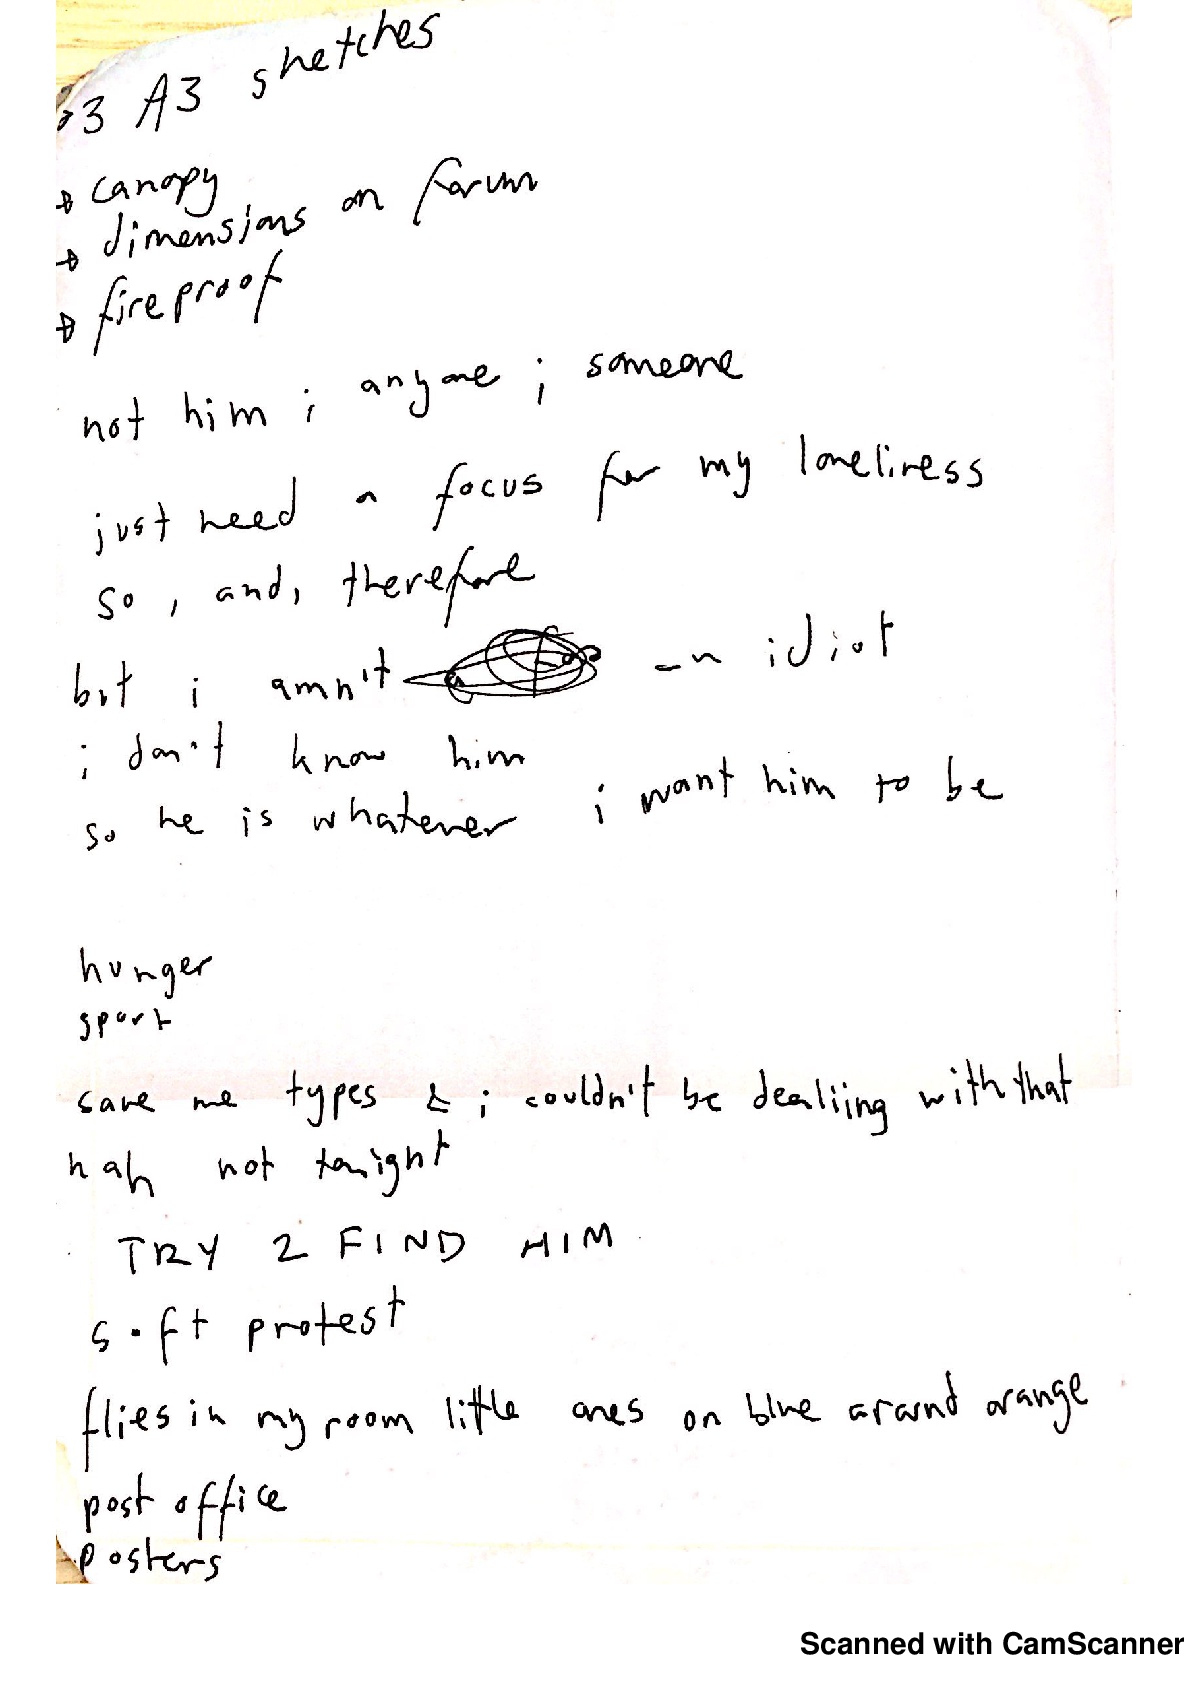 →3 A3 sketches
→ canopy
→ dimensions on forum
→ fireproof
not him ; anyone ; someone
just need a focus for my loneliness
so , and, therefore
but i amn't an idiot
i don't know him
so he is whatever i want him to be
hunger
sport
save me types & i couldn't be dealiing with that
nah not tonight
TRY 2 FIND HIM
soft protest
flies in my room little ones on blue around orange
post office
posters
Scanned with CamScanner